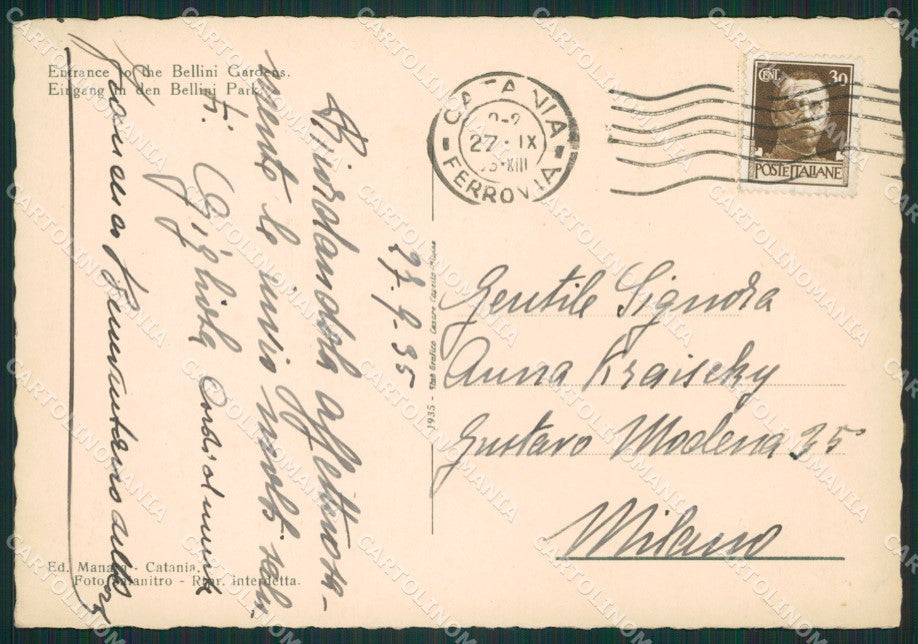 Entrance to the Bellini Gardens.
Eingang in den Bellini Park.
CATANIA
FERROVIA
27 · IX
XIII
CENT. 30
POSTE ITALIANE
27.9.35
Ricordandola affettuosa-
mente le invio molti salu-
ti. Gigliola
Cordialmente
1935 -
Gentile Signora
Anna Kraischy
Gustavo Modena 35
Milano
Ed. Manara - Catania.
Foto - Ripr. Interdetta.
CARTOLINOMANIA